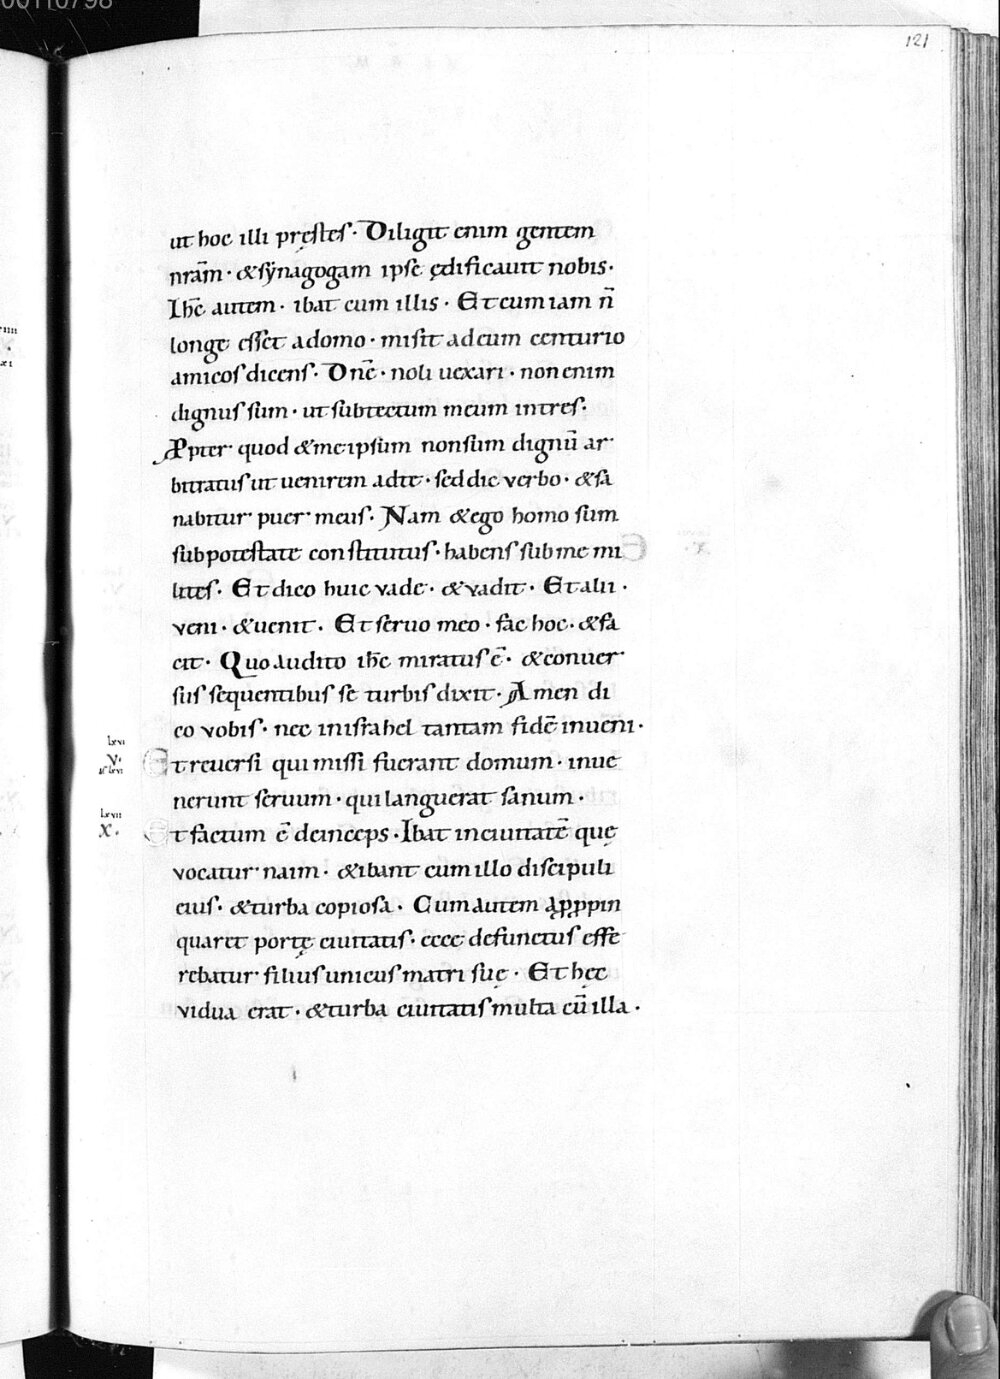 00110798
121
ut hoc illi pręstes · Diligit enim gentem
nr̄am · & synagogam ipse ędificauit nobis ·
Ih̄c autem · ibat cum illis · Et cum iam n̄
longe esset a domo · misit ad eum centurio
amicos dicens · Dn̄e · noli uexari · non enim
dignus sum · ut sub tectum meum intres ·
Ꝓpter quod & me ipsum non sum dignū ar
bitratus ut uenirem ad te · sed dic verbo · & sa
nabitur puer meus · Nam & ego homo sum
sub potestate constitutus · habens sub me mi
lites · Et dico huic vade · & vadit · Et alii ·
veni · & uenit · Et seruo meo · fac hoc · & fa
cit · Quo audito ih̄c miratus ē · & conuer
sus sequentibus se turbis dixit · Amen di
co vobis · nec in israhel tantam fidē inueni ·
lxvi
v.
Et reuersi qui missi fuerant domum · inue
nerunt seruum · qui languerat sanum ·
lxvii
x.
Et factum ē deinceps · Ibat in ciuitatē quę
vocatur naim · & ibant cum illo discipuli
eius · & turba copiosa · Cum autem aꝓpin
quaret portę ciuitatis · ecce defunctus effe
rebatur filius unicus matri suę · Et hęc
vidua erat · & turba ciuitatis multa cū illa ·